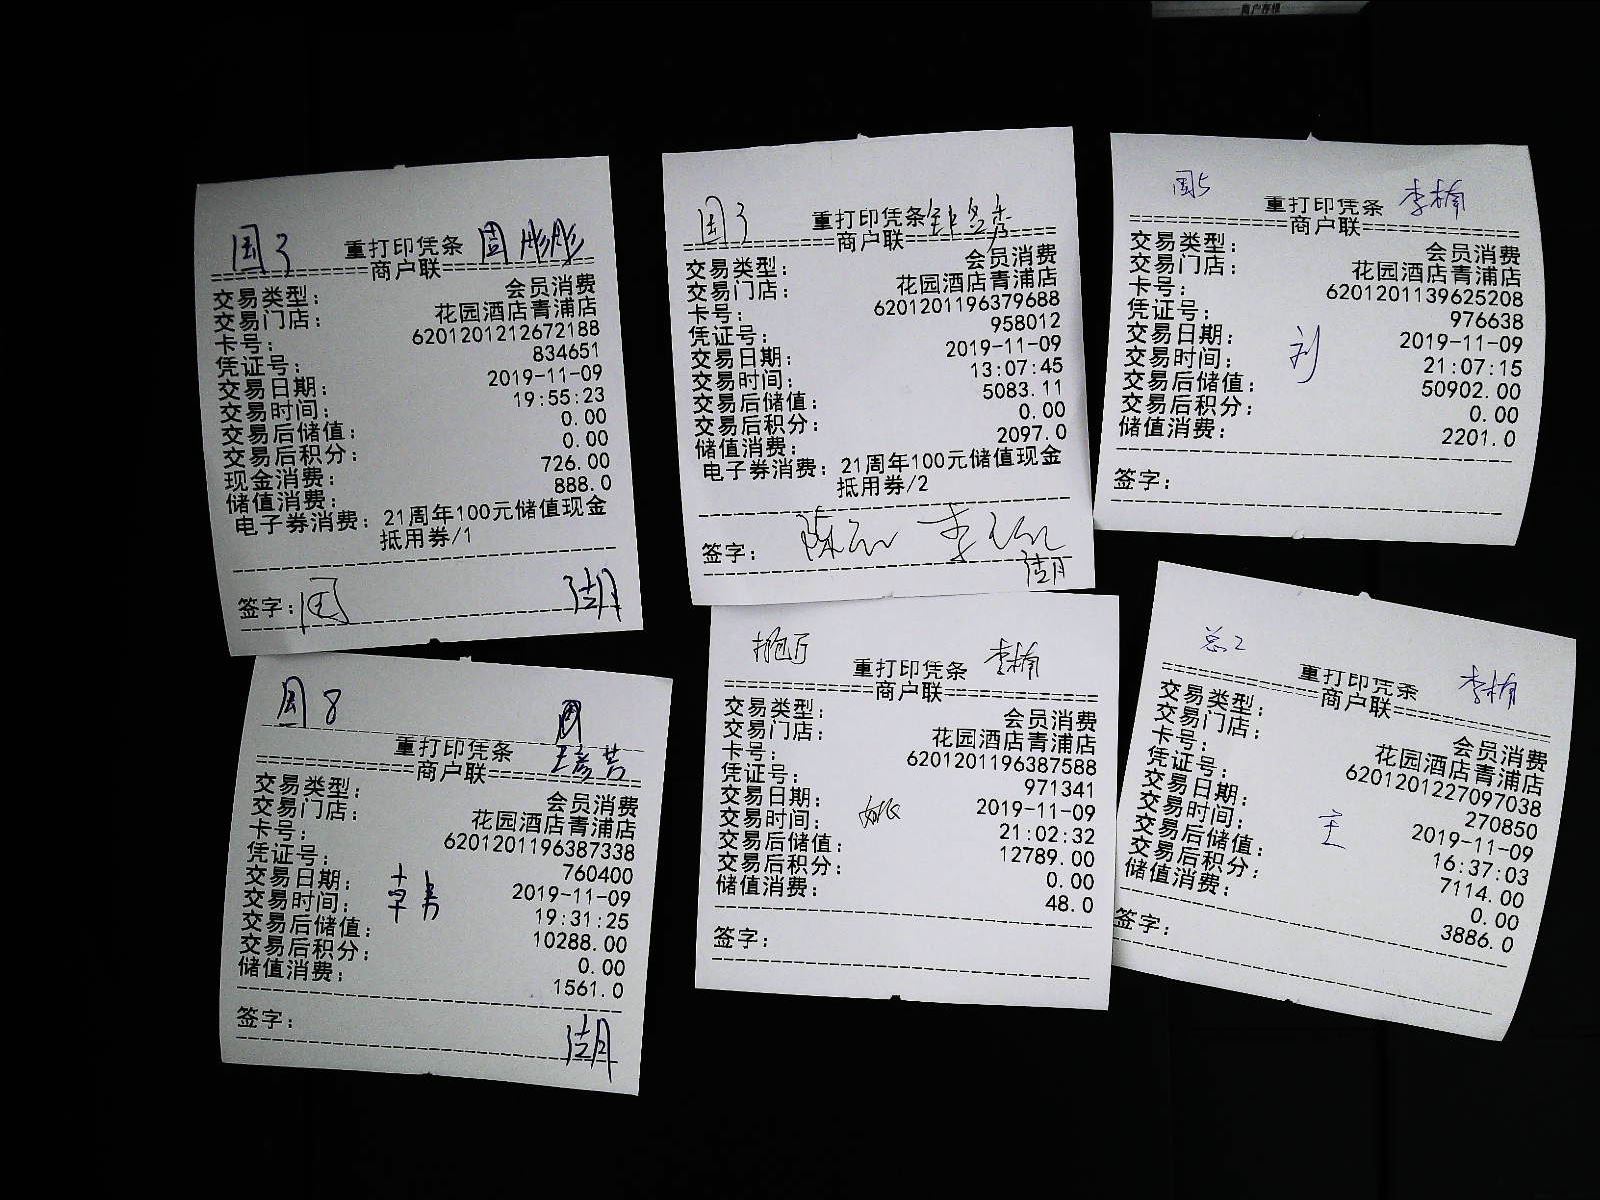 商户存根
国3 重打印凭条 周彤彤
================商户联================
交易类型: 会员消费
交易门店: 花园酒店青浦店
卡号: 6201201212672188
凭证号: 834651
交易日期: 2019-11-09
交易时间: 19:55:23
交易后储值: 0.00
交易后积分: 0.00
现金消费: 726.00
储值消费: 888.0
电子券消费: 21周年100元储值现金
抵用券/1
签字:
国3 重打印凭条
================商户联================
交易类型: 会员消费
交易门店: 花园酒店青浦店
卡号: 6201201196379688
凭证号: 958012
交易日期: 2019-11-09
交易时间: 13:07:45
交易后储值: 5083.11
交易后积分: 0.00
储值消费: 2097.0
电子券消费: 21周年100元储值现金
抵用券/2
签字:
国5 重打印凭条 李楠
================商户联================
交易类型: 会员消费
交易门店: 花园酒店青浦店
卡号: 6201201139625208
凭证号: 976638
交易日期: 2019-11-09
交易时间: 21:07:15
交易后储值: 50902.00
交易后积分: 0.00
储值消费: 2201.0
刘
签字:
国8
重打印凭条
================商户联================
交易类型: 会员消费
交易门店: 花园酒店青浦店
卡号: 6201201196387338
凭证号: 760400
交易日期: 2019-11-09
交易时间: 19:31:25
交易后储值: 10288.00
交易后积分: 0.00
储值消费: 1561.0
签字:
重打印凭条 李楠
================商户联================
交易类型: 会员消费
交易门店: 花园酒店青浦店
卡号: 6201201196387588
凭证号: 971341
交易日期: 2019-11-09
交易时间: 21:02:32
交易后储值: 12789.00
交易后积分: 0.00
储值消费: 48.0
签字:
总2 重打印凭条 李楠
================商户联================
交易类型: 会员消费
交易门店: 花园酒店青浦店
卡号: 6201201227097038
凭证号: 270850
交易日期: 2019-11-09
交易时间: 16:37:03
交易后储值: 7114.00
交易后积分: 0.00
储值消费: 3886.0
签字: